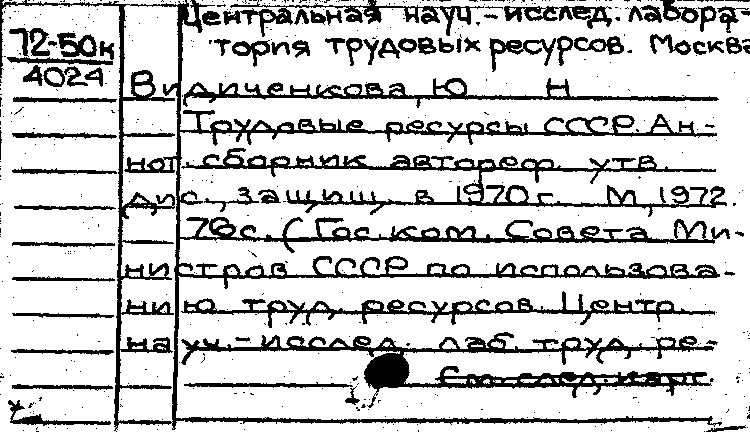 Центральная науч.-исслед. лабора-
72-50к
тория трудовых ресурсов. Москва
4024
Видиченкова, Ю Н
Трудовые ресурсы СССР. Ан-
нот. сборник автореф. утв.
дис., защищ. в 1970 г. М, 1972.
76 с. (Гос. ком. Совета Ми-
нистров СССР по использова-
нию труд. ресурсов. Центр.
науч.-исслед. лаб. труд. ре-
См. след. карт.